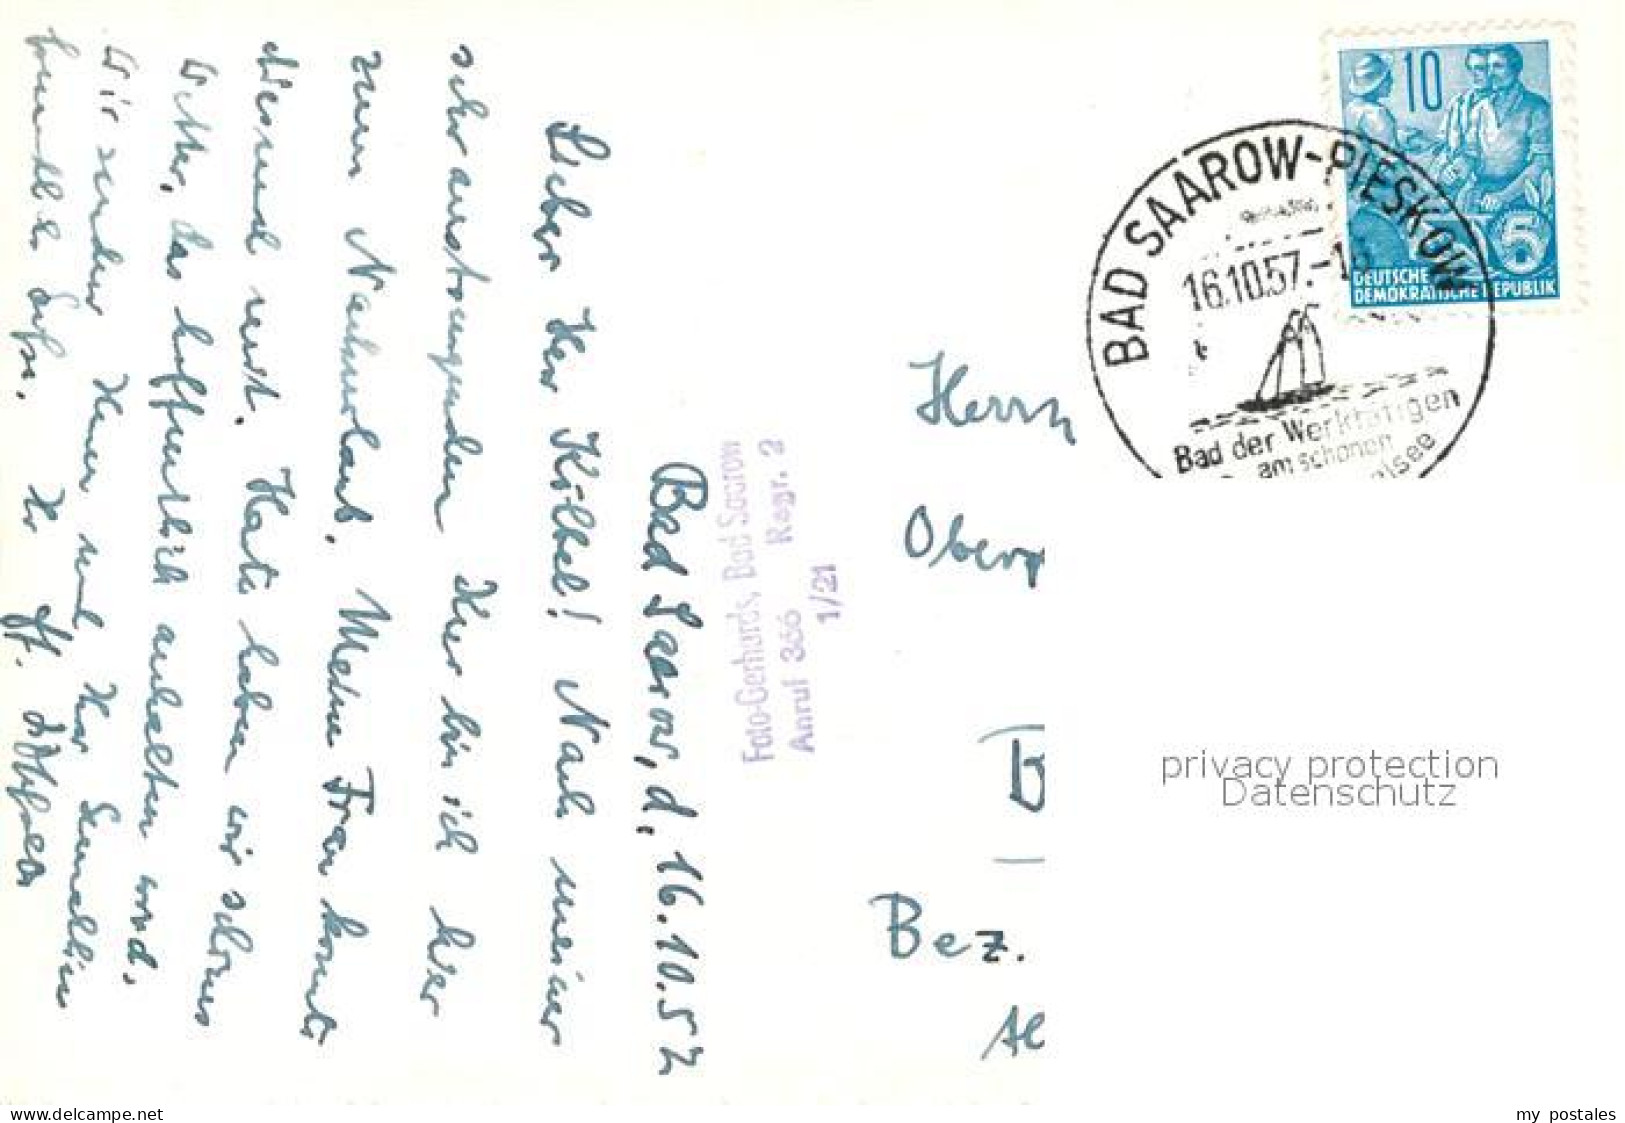 Bad Saarow, d. 16.10.57
Lieber Herr Kölbel! Nach meiner
sehr anstrengenden Kur bin ich hier
zum Nachurlaub. Meine Frau konnte
diesmal mit. Heute haben wir schönes
Wetter, das hoffentlich anhalten wird.
Wir senden Ihnen und Ihrer Familie
freundliche Grüße. Ihr
Foto-Gerhards, Bad Saarow
Anruf 366 Regr. 2
1/21
10
DEUTSCHE
DEMOKRATISCHE REPUBLIK
5
BAD SAAROW-PIESKOW
16.10.57.-1
Bad der Werktätigen
am schönen
Herrn
Ober
Bez.
privacy protection
Datenschutz
www.delcampe.net
my_postales